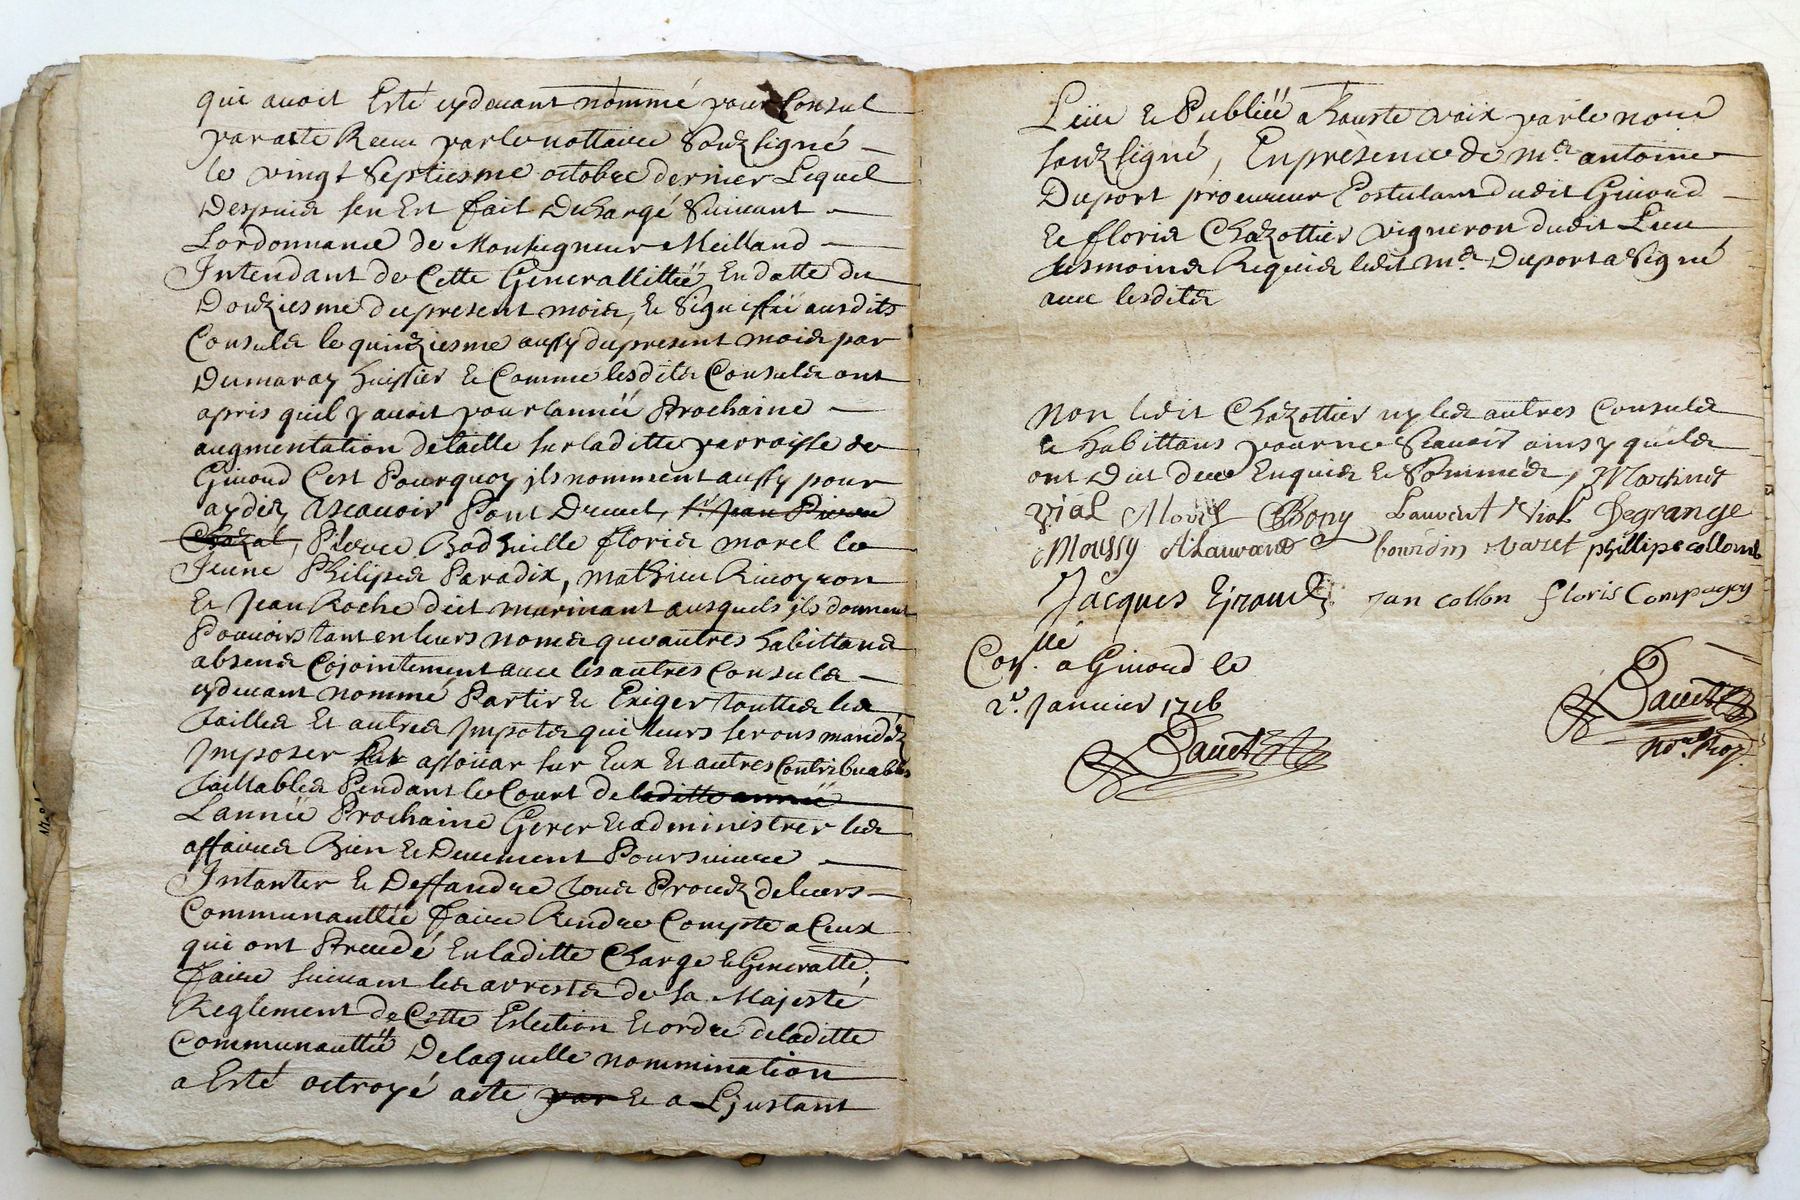 qui avoit Esté cydevant nommé pour Consul
par acte Receu par le nottaire Souzsigné
le vingt Septiesme octobre dernier Lequel
Despuis sen Est fait Dechargé Suivant
Lordonnance de Monseigneur Meilland
Intendant de Cette Generallittéé En datte du
Douziesme du present mois, & Signiffié ausdits
Consuls le quinziesme aussy du present mois par
Dumaray huissier & Comme lesdits Consuls ont
apris quil y avoit pour lannéé Prochaine
augmentation de taille sur laditte parroisse de
Givord C'est Pourquoy ils nomment aussy pour
aydes Ascavoir Pont Druet, Sr. Jean Pierre
Chazal, Pierre Badhuille floris morel le
Jeune Philipes Paradix, mathieu Rivoyron
Et Jean Roche dict marinant ausquels ils donnent
Pouvoirs tant en leurs noms que autres habittans
absens Cojointement avec les autres Consuls
cydevant nommé Partir & Exiger touttes les
tailles Et autres Impots qui leurs serons mandéz
Imposer sur assouar sur Eux Et autres Contribuables
taillables Pendant le Court de laditte annéé
Lannéé Prochaine Gerer & administrer les
affaires Bien & Deuement Poursuivre
Intanter & Deffandre tous Procéz de leurs
Communauttée faire Rendre Compte a Ceux
qui ont Precedé En laditte Charge & Generallt.
faire suivant les arrests de Sa Majesté
Reglement de Cette Eslection & ordre de laditte
Communauttéé De laquelle nommination
a Esté octroyé acte par & a Ljnstant
Leüe & Publiéé a hauste voix par le nore
souzsigné, En presence de mr. antoine
Duport procureur Postulant dudit Givord
& floris Chazottier vigneron dudit Lieu
tesmoins Requis ledit mr. Duport a Signé
avec lesdits
non ledit Chazottier ny les autres Consuls
& habittans pour ne Scavoir ainsy quils
ont Dit de ce Enquis & Sommés, Martinet
vial Morel Bony Laurent Vial Degrange
Moussy bourdin phillipe collomb
Jacques Giraud Jan collon floris Compagny
Con.lle a Givord le
2e. Janvier 1716
Davet
Davet
nore. Roy.